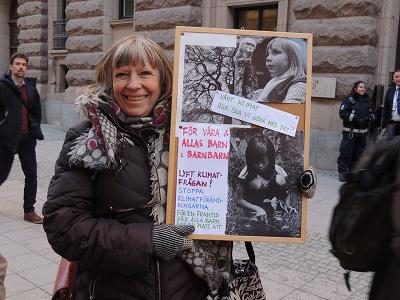 VÅRT KLIMAT
HUR SKA VI GÖRA MED DET?
FÖR VÅRA &
ALLAS BARN
& BARNBARN
LYFT KLIMAT-
FRÅGAN!
STOPPA
KLIMATFÖRÄND-
RINGARNA
FÖR EN FRAMTID
DÄR ALLA BARN
PLATS ATT